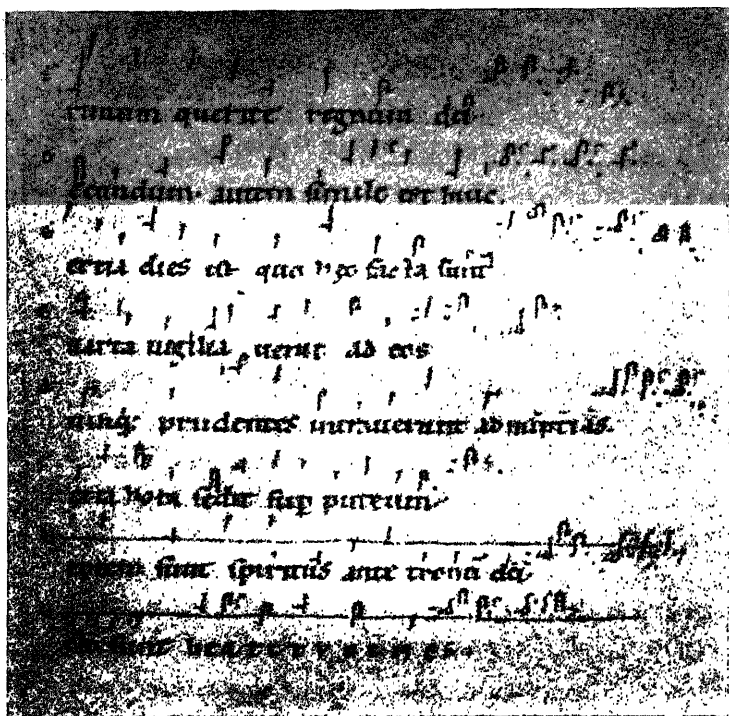 rimum querite regnum dei
ecundum autem simile est huic.
ertia dies est quo hec facta sunt
uarta uigilia uenit ad eos
uinq; prudentes intrauerunt ad nuptias.
exta hora sedit sup puteum
eptem sunt spiritus ante tronū dei
sunt